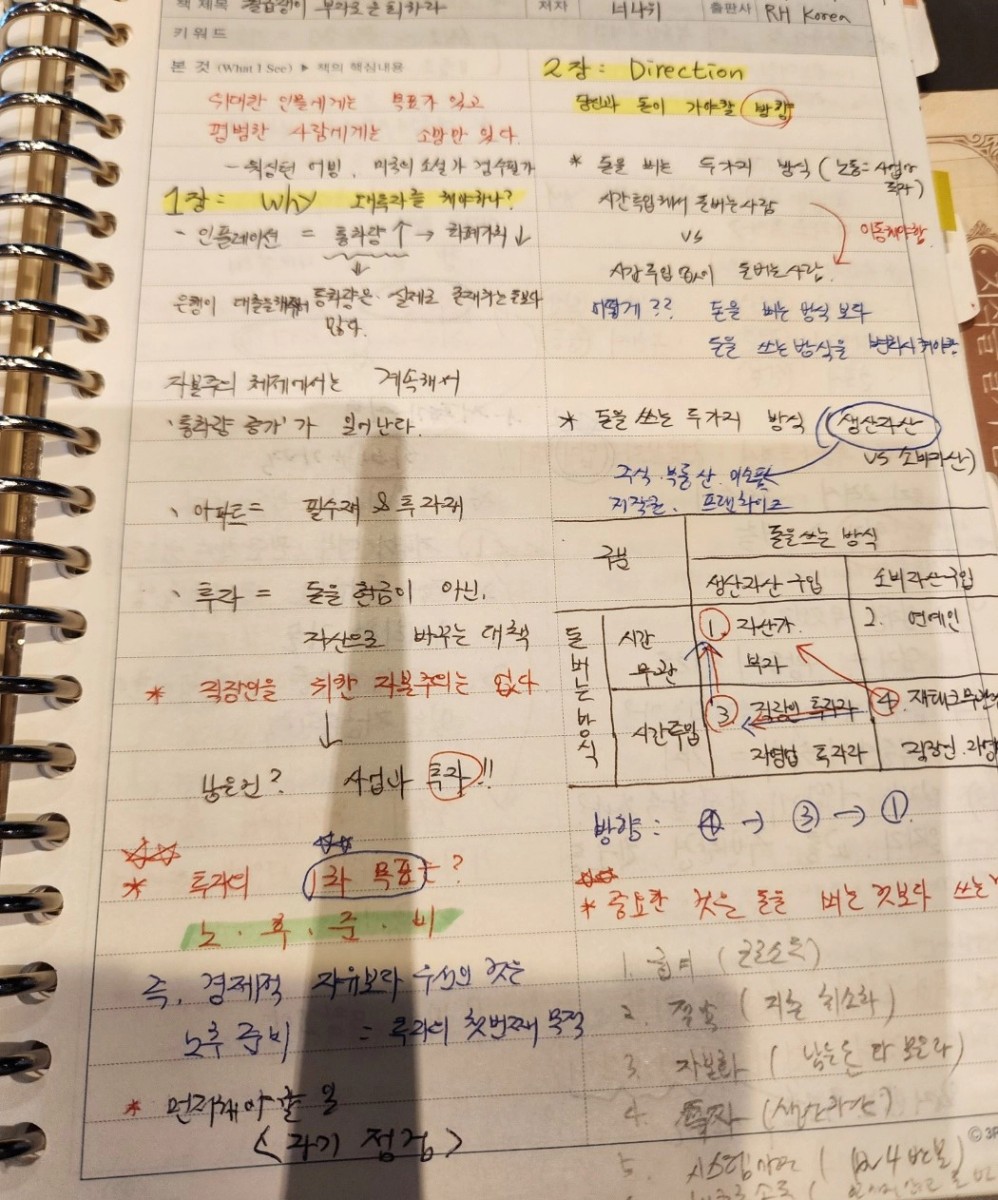 책 제목 월급쟁이 부자로 은퇴하라 저자 너나위 출판사 RH Korea
키워드
본 것 (What I See) ▶ 책의 핵심내용
위대한 인물에게는 목표가 있고
평범한 사람에게는 소망만 있다.
- 워싱턴 어빙, 미국의 소설가 겸 수필가
1장: Why 왜 투자를 해야하나?
- 인플레이션 = 통화량 ↑ → 화폐가치 ↓
은행이 대출을해줘서 통화량은 실제로 존재하는 돈보다
많다.
자본주의 체제에서는 계속해서
'통화량 증가'가 일어난다.
、아파트 = 필수재 & 투자재
、투자 = 돈을 현금이 아닌,
자산으로 바꾸는 대책
* 직장인을 위한 자본주의는 없다
↓
남은건? 사업과 투자!!
* 투자의 1차 목표는?
노 · 후 · 준 · 비
즉, 경제적 자유보다 우선인 것은
노후 준비 = 투자의 첫번째 목적
* 먼저해야 할 일
< 자기 점검 >
2장: Direction
당신과 돈이 가야할 방향
* 돈을 버는 두가지 방식 (노동= 사업과
투자)
시간투입해서 돈버는사람
VS
이동해야함.
시간투입 없이 돈버는사람.
어떻게?? 돈을 버는 방식 보다
돈을 쓰는방식을 변화시켜야함
* 돈을 쓰는 두가지 방식 (생산자산
VS 소비자산)
주식. 부동산. 이모티콘
저작권. 프랜차이즈
구분 돈을쓰는 방식
생산자산 구입 소비자산구입
돈 버는 방식
시간 무관 ① 자산가. 부자 2. 연예인
시간투입 ③ 직장인 투자자 자영업 투자자 ④. 재테크무관 직장인. 자영
방향: ④ → ③ → ①.
* 중요한 것은 돈을 버는 것보다 쓰는
1. 급여 (근로소득)
2. 절약 (지출 최소화)
3. 자본화 (남은돈 다 모은다)
4. 투자 (생산자산)
5. 시스템